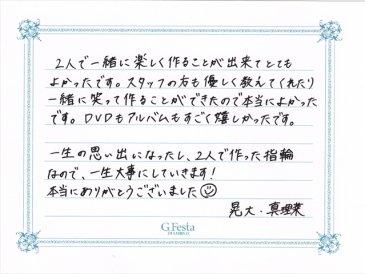 2人で一緒に楽しく作ることが出来てとても
よかったです。スタッフの方も優しく教えてくれたり
一緒に笑って作ることができたので本当によかった
です。DVDもアルバムもすごく嬉しかったです。
一生の思い出になったし、2人で作った指輪
なので、一生大事にしていきます!
本当にありがとうございました
晃大・真理菜
G.Festa